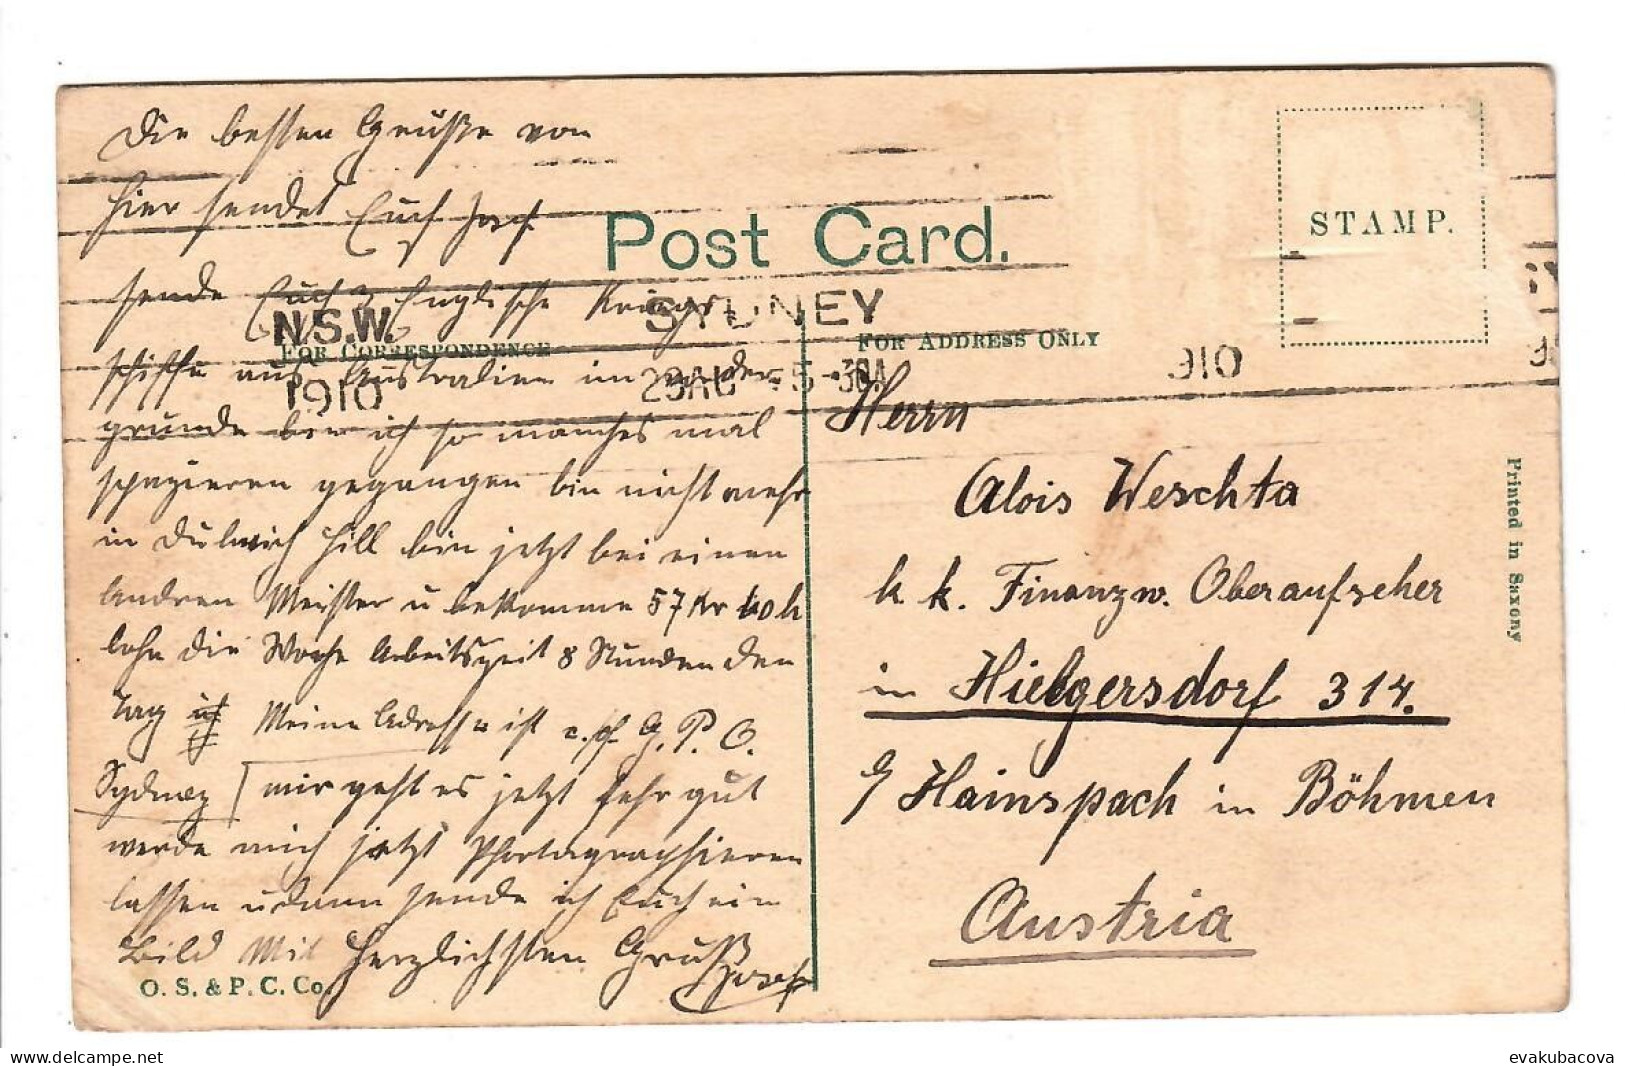 Die besten Grüße von
hier sendet Euch Josef.
sende Euch 3 Englische Kriegs
schiffe aus Australien im
grunde bin ich so manches mal
spazieren gegangen bin nicht mehr
in Dulwich Hill bin jetzt bei einen
andren Meister u bekomme 57 Kr 40 h
lohn die Woche Arbeitszeit 8 Stunden den
Tag Meine Adresse ist G. P. O.
Sydney mir geht es jetzt sehr gut
werde mich jetzt Photagraphieren
lassen u dann sende ich Euch ein
Bild Mit Herzlichsten Gruß
Josef
Post Card.
STAMP.
N.S.W.
1910
SYDNEY
29AU 5-30A
910
FOR CORRESPONDENCE
FOR ADDRESS ONLY
Herrn
Alois Weschta
k k. Finanzw. Oberaufseher
in Hielgersdorf 314.
Hainspach in Böhmen
Austria
Printed in Saxony
O. S. & P. C. Co
evakubacova
delcampe.net